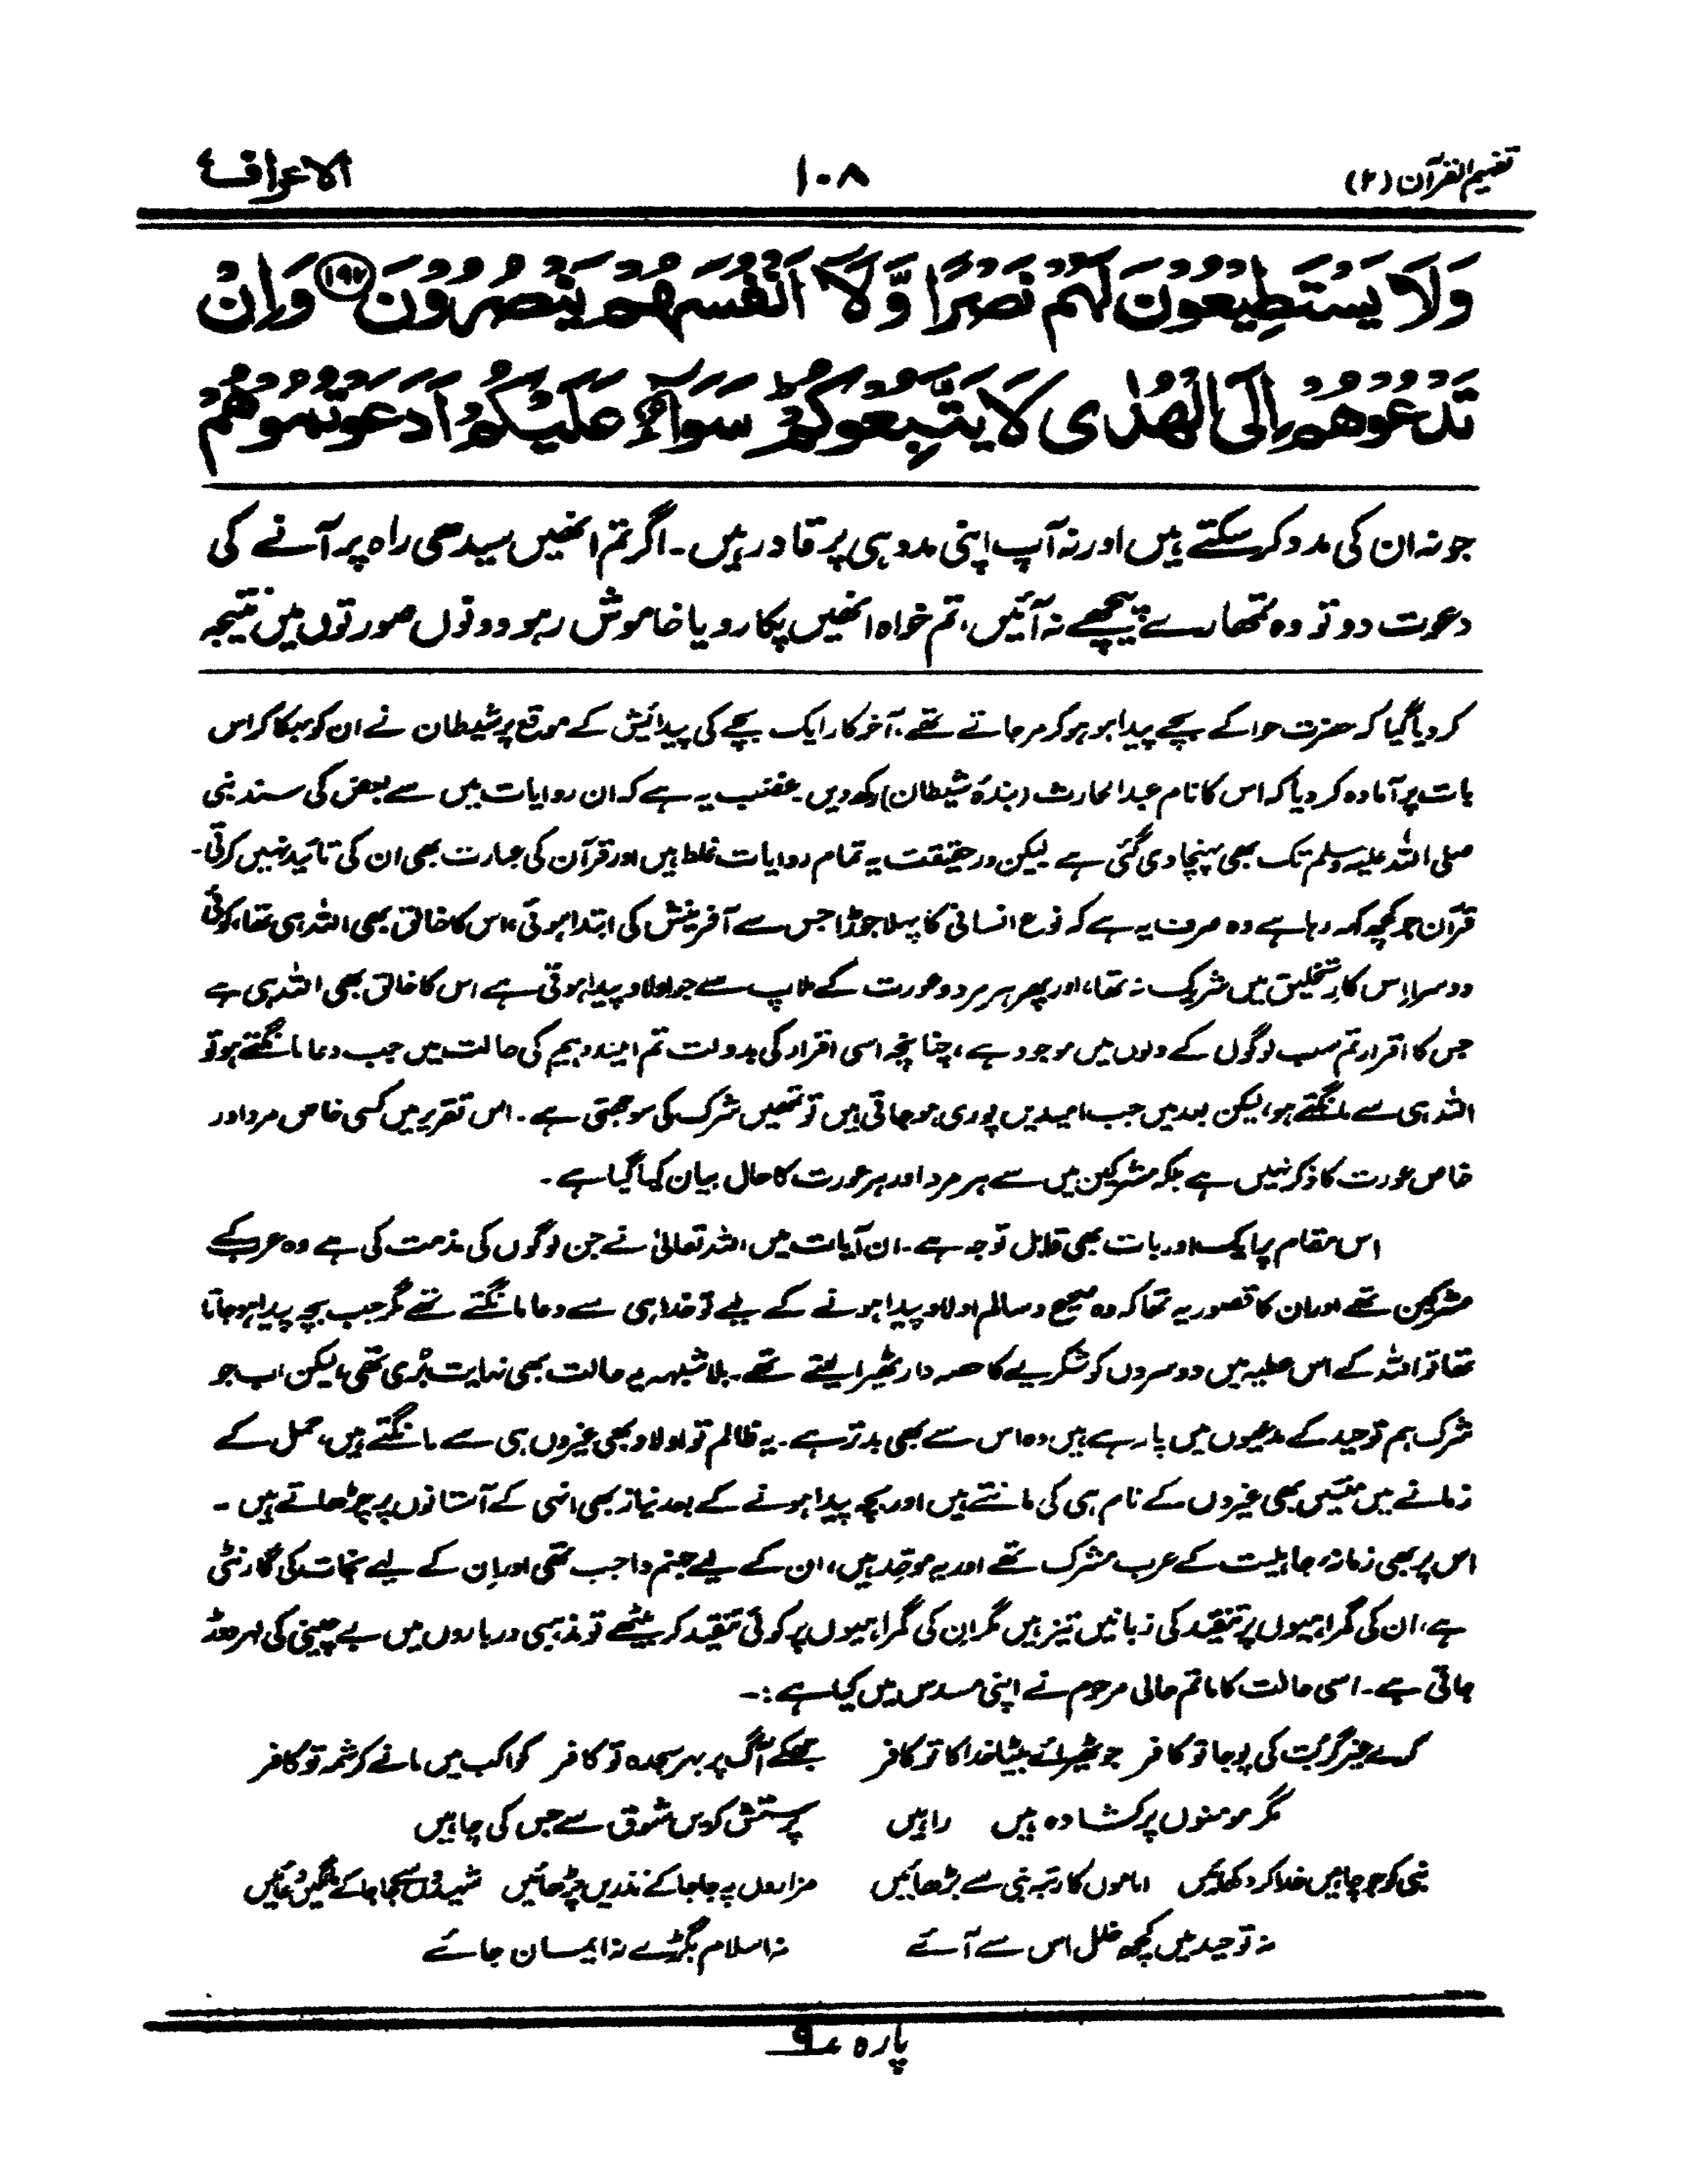 تفہیم القرآن (۲)
۱۰۸
الاعراف ۷
وَلَا يَسْتَطِيعُونَ لَهُمْ نَصْرًا وَّلَآ اَنْفُسَهُمْ يَنْصُرُوْنَ ۝۱۹۲ وَاِنْ
تَدْعُوْهُمْ اِلَى الْهُدٰى لَا يَتَّبِعُوْكُمْ ؕ سَوَآءٌ عَلَيْكُمْ اَدَعَوْتُمُوْهُمْ
جو نہ ان کی مدد کر سکتے ہیں اور نہ آپ اپنی مدد ہی پر قادر ہیں۔ اگر تم انھیں سیدھی راہ پر آنے کی
دعوت دو تو وہ تمھارے پیچھے نہ آئیں، تم خواہ انھیں پکارو یا خاموش رہو دونوں صورتوں میں نتیجہ
کر دیا گیا کہ حضرت حوا کے بچے پیدا ہو ہو کر مر جاتے تھے، آخر کار ایک بچے کی پیدائش کے موقع پر شیطان نے ان کو بہکا کر اس
بات پر آمادہ کر دیا کہ اس کا نام عبدالحارث (بندۂ شیطان) رکھ دیں۔ غضب یہ ہے کہ ان روایات میں سے بعض کی سند نبی
صلی اللہ علیہ وسلم تک بھی پہنچا دی گئی ہے لیکن درحقیقت یہ تمام روایات غلط ہیں اور قرآن کی عبارت بھی ان کی تائید نہیں کرتی۔
قرآن جو کچھ کہہ رہا ہے وہ صرف یہ ہے کہ نوع انسانی کا پہلا جوڑا جس سے آفرینش کی ابتدا ہوئی، اس کا خالق بھی اللہ ہی تھا، کوئی
دوسرا اس کارِ تخلیق میں شریک نہ تھا، اور پھر ہر مرد و عورت کے ملاپ سے جو اولاد پیدا ہوتی ہے اس کا خالق بھی اللہ ہی ہے
جس کا اقرار تم سب لوگوں کے دلوں میں موجود ہے، چنانچہ اسی اقرار کی بدولت تم امید و بیم کی حالت میں جب دعا مانگتے ہو تو
اللہ ہی سے مانگتے ہو، لیکن بعد میں جب امیدیں پوری ہو جاتی ہیں تو تمھیں شرک کی سوجھتی ہے۔ اس تقریر میں کسی خاص مرد اور
خاص عورت کا ذکر نہیں ہے بلکہ مشرکین میں سے ہر مرد اور ہر عورت کا حال بیان کیا گیا ہے۔
اس مقام پر ایک اور بات بھی قابل توجہ ہے۔ ان آیات میں اللہ تعالیٰ نے جن لوگوں کی مذمت کی ہے وہ عرب کے
مشرکین تھے اور ان کا قصور یہ تھا کہ وہ صحیح و سالم اولاد پیدا ہونے کے لیے تو خدا ہی سے دعا مانگتے تھے مگر جب بچہ پیدا ہو جاتا
تھا تو اللہ کے اس عطیہ میں دوسروں کو شکریے کا حصہ دار ٹھیرا لیتے تھے۔ بلا شبہہ یہ حالت بھی نہایت بُری تھی، لیکن اب جو
شرک ہم توحید کے مدعیوں میں پا رہے ہیں وہ اس سے بھی بدتر ہے۔ یہ ظالم تو اولاد بھی غیروں ہی سے مانگتے ہیں، حمل کے
زمانے میں منتیں بھی غیروں کے نام ہی کی مانتے ہیں اور بچہ پیدا ہونے کے بعد نیاز بھی انہی کے آستانوں پر چڑھاتے ہیں۔
اس پر بھی زمانۂ جاہلیت کے عرب مشرک تھے اور یہ موحّد ہیں، ان کے لیے جہنم واجب تھی اور اِن کے لیے نجات کی گارنٹی
ہے، ان کی گمراہیوں پر تنقید کی زبانیں تیز ہیں مگر اِن کی گمراہیوں پر کوئی تنقید کر بیٹھے تو مذہبی درباروں میں بے چینی کی لہر دوڑ
جاتی ہے۔ اسی حالت کا ماتم حالی مرحوم نے اپنی مسدس میں کیا ہے :۔
کرے غیر گر بت کی پوجا تو کافر جو ٹھیرائے بیٹا خدا کا تو کافر جھکے آگ پر بہر سجدہ تو کافر کواکب میں مانے کرشمہ تو کافر
مگر مومنوں پر کشادہ ہیں راہیں پرستش کریں شوق سے جس کی چاہیں
نبی کو جو چاہیں خدا کر دکھائیں اماموں کا رتبہ نبی سے بڑھائیں مزاروں پہ جا جا کے نذریں چڑھائیں شہیدوں سے جا جا کے مانگیں دعائیں
نہ توحید میں کچھ خلل اس سے آئے نہ اسلام بگڑے نہ ایمان جائے
پارہ ۹